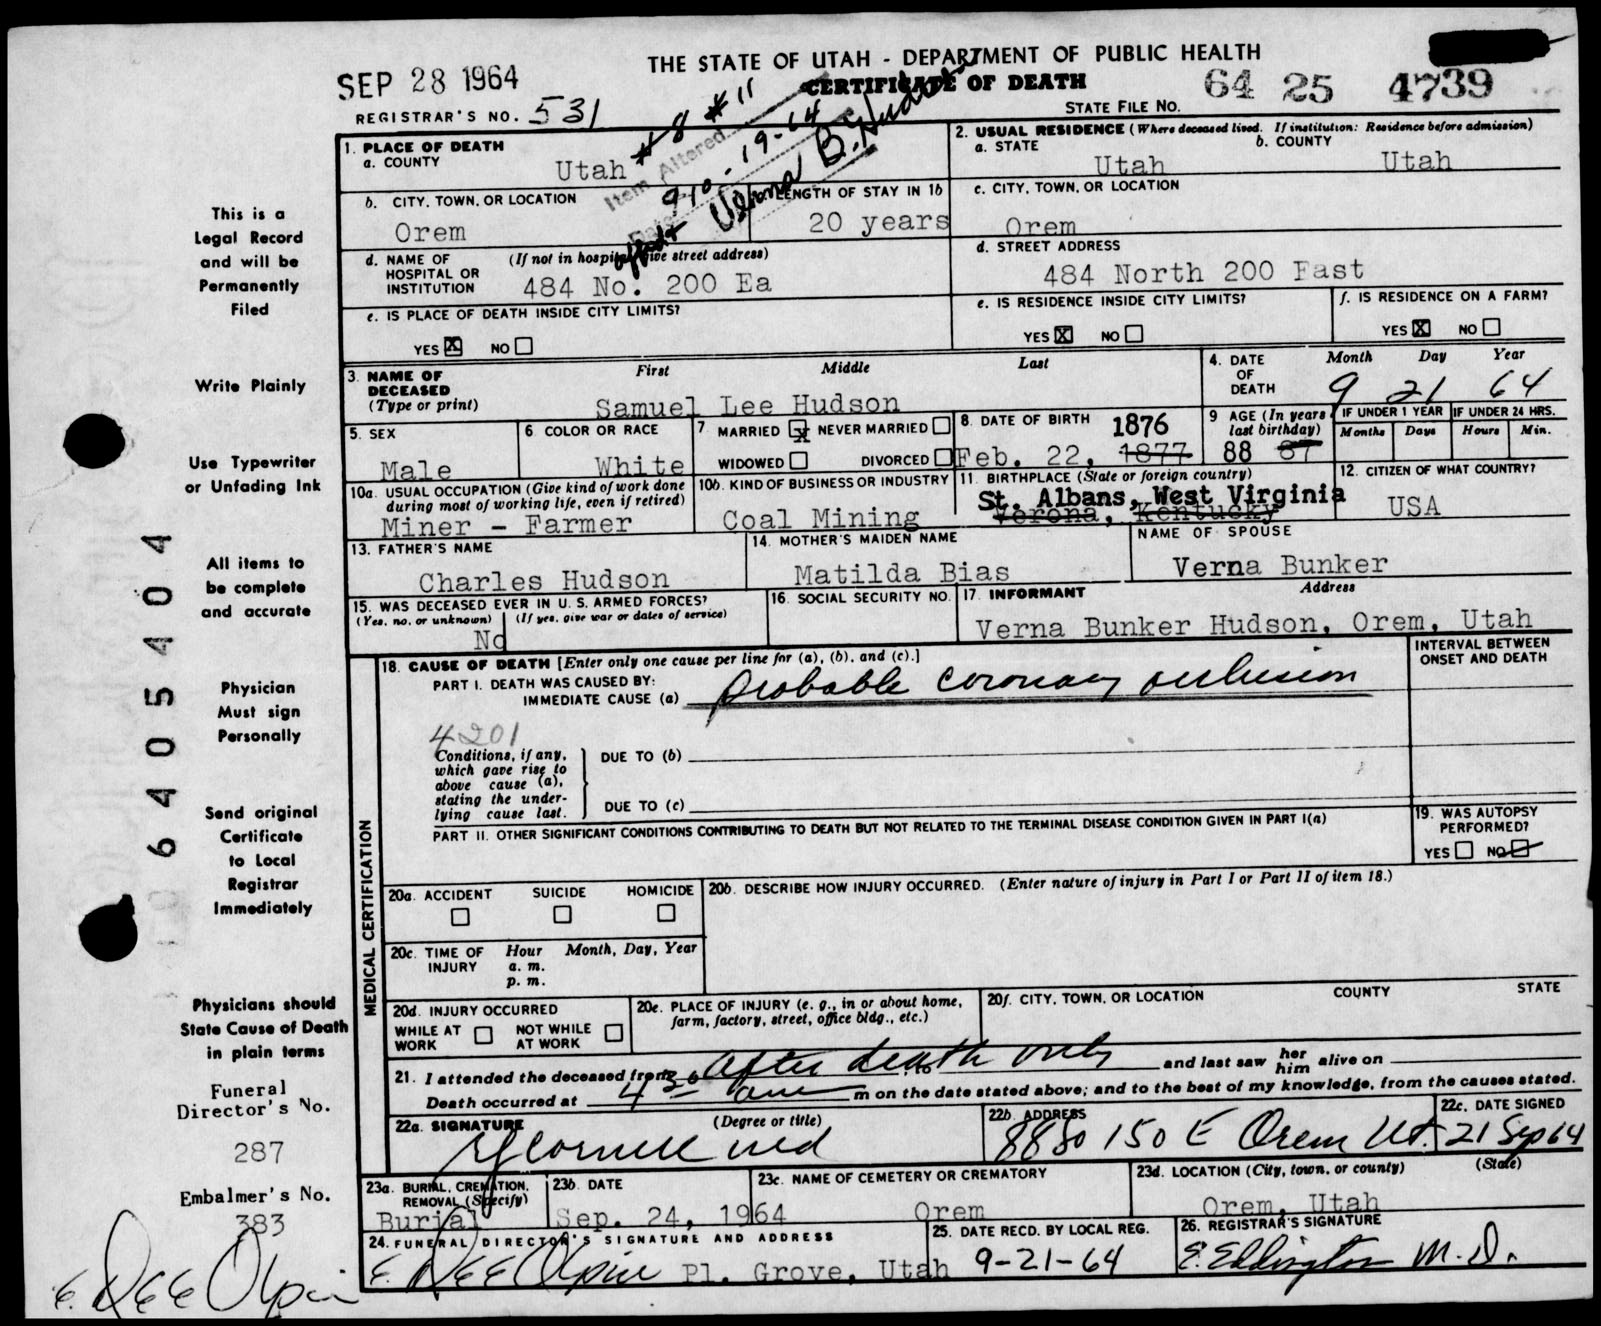 THE STATE OF UTAH - DEPARTMENT OF PUBLIC HEALTH
CERTIFICATE OF DEATH
SEP 28 1964
REGISTRAR'S NO. 531
STATE FILE NO. 64 25 4739
#8 #11
Item Altered
Date 9-10-19-64
affdt Verna B. Hudson
1. PLACE OF DEATH
a. COUNTY
Utah
b. CITY, TOWN, OR LOCATION
Orem
LENGTH OF STAY IN 1b
20 years
d. NAME OF HOSPITAL OR INSTITUTION (If not in hospital, give street address)
484 No. 200 Ea
e. IS PLACE OF DEATH INSIDE CITY LIMITS?
YES X NO
2. USUAL RESIDENCE (Where deceased lived. If institution: Residence before admission)
a. STATE
Utah
b. COUNTY
Utah
c. CITY, TOWN, OR LOCATION
Orem
d. STREET ADDRESS
484 North 200 East
e. IS RESIDENCE INSIDE CITY LIMITS?
YES X NO
f. IS RESIDENCE ON A FARM?
YES X NO
3. NAME OF DECEASED (Type or print)
First Middle Last
Samuel Lee Hudson
4. DATE OF DEATH
Month Day Year
9 21 64
5. SEX
Male
6. COLOR OR RACE
White
7. MARRIED X NEVER MARRIED
WIDOWED DIVORCED
8. DATE OF BIRTH 1876
Feb. 22, 1877
9 AGE (In years last birthday)
88 87
IF UNDER 1 YEAR
Months Days
IF UNDER 24 HRS.
Hours Min.
10a. USUAL OCCUPATION (Give kind of work done during most of working life, even if retired)
Miner - Farmer
10b. KIND OF BUSINESS OR INDUSTRY
Coal Mining
11. BIRTHPLACE (State or foreign country)
St. Albans, West Virginia
Verona, Kentucky
12. CITIZEN OF WHAT COUNTRY?
USA
13. FATHER'S NAME
Charles Hudson
14. MOTHER'S MAIDEN NAME
Matilda Bias
NAME OF SPOUSE
Verna Bunker
15. WAS DECEASED EVER IN U. S. ARMED FORCES?
(Yes, no, or unknown) (If yes, give war or dates of service)
No
16. SOCIAL SECURITY NO.
17. INFORMANT Address
Verna Bunker Hudson, Orem, Utah
MEDICAL CERTIFICATION
18. CAUSE OF DEATH [Enter only one cause per line for (a), (b), and (c).]
PART I. DEATH WAS CAUSED BY:
IMMEDIATE CAUSE (a) probable coronary occlusion
INTERVAL BETWEEN ONSET AND DEATH
4201
Conditions, if any, which gave rise to above cause (a), stating the underlying cause last.
DUE TO (b)
DUE TO (c)
PART II. OTHER SIGNIFICANT CONDITIONS CONTRIBUTING TO DEATH BUT NOT RELATED TO THE TERMINAL DISEASE CONDITION GIVEN IN PART I(a)
19. WAS AUTOPSY PERFORMED?
YES NO
20a. ACCIDENT SUICIDE HOMICIDE
20b. DESCRIBE HOW INJURY OCCURRED. (Enter nature of injury in Part I or Part II of item 18.)
20c. TIME OF INJURY Hour Month, Day, Year
a. m.
p. m.
20d. INJURY OCCURRED
WHILE AT WORK NOT WHILE AT WORK
20e. PLACE OF INJURY (e. g., in or about home, farm, factory, street, office bldg., etc.)
20f. CITY, TOWN, OR LOCATION COUNTY STATE
21. I attended the deceased from after death only and last saw her him alive on
Death occurred at 4 30 am m on the date stated above; and to the best of my knowledge, from the causes stated.
22a. SIGNATURE (Degree or title)
md
22b. ADDRESS
888o 150 E Orem Ut.
22c. DATE SIGNED
21 Sep 64
23a. BURIAL, CREMATION, REMOVAL (Specify)
Burial
23b. DATE
Sep. 24, 1964
23c. NAME OF CEMETERY OR CREMATORY
Orem
23d. LOCATION (City, town, or county) (State)
Orem, Utah
24. FUNERAL DIRECTOR'S SIGNATURE AND ADDRESS
E. Dee Olpin Pl. Grove, Utah
25. DATE RECD. BY LOCAL REG.
9-21-64
26. REGISTRAR'S SIGNATURE
E. Eddington M.D.
This is a
Legal Record
and will be
Permanently
Filed
Write Plainly
Use Typewriter
or Unfading Ink
All items to
be complete
and accurate
Physician
Must sign
Personally
Send original
Certificate
to Local
Registrar
Immediately
Physicians should
State Cause of Death
in plain terms
Funeral
Director's No.
287
Embalmer's No.
383
E. Dee Olpin
6405404